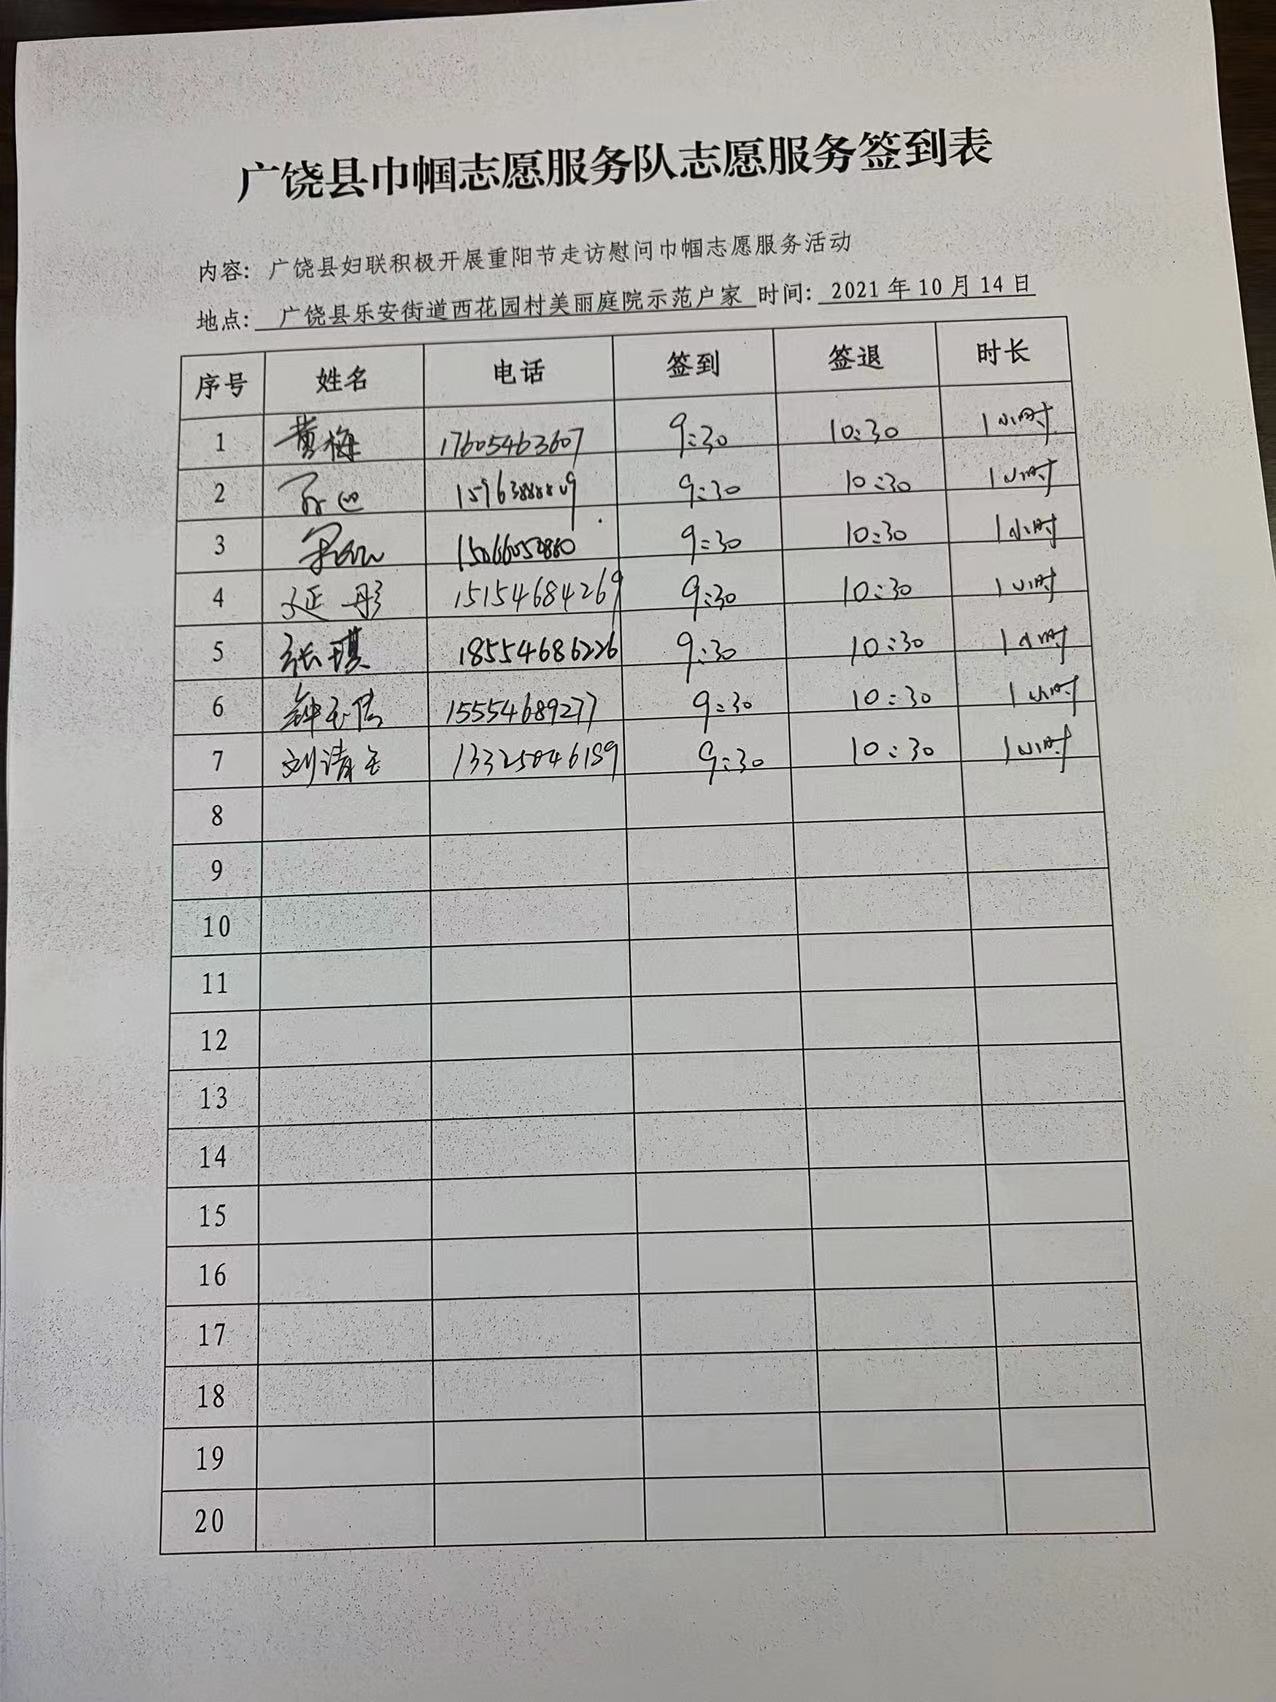 广饶县巾帼志愿服务队志愿服务签到表
内容：广饶县妇联积极开展重阳节走访慰问巾帼志愿服务活动
地点：广饶县乐安街道西花园村美丽庭院示范户家 时间：2021 年 10 月 14 日
序号 姓名 电话 签到 签退 时长
1 黄梅 17605463607 9:30 10:30 1小时
2 9:30 10:30 1小时
3 9:30 10:30 1小时
4 延彤 15154684269 9:30 10:30 1小时
5 张琪 18554686226 9:30 10:30 1小时
6 15554689277 9:30 10:30 1小时
7 9:30 10:30 1小时
8
9
10
11
12
13
14
15
16
17
18
19
20